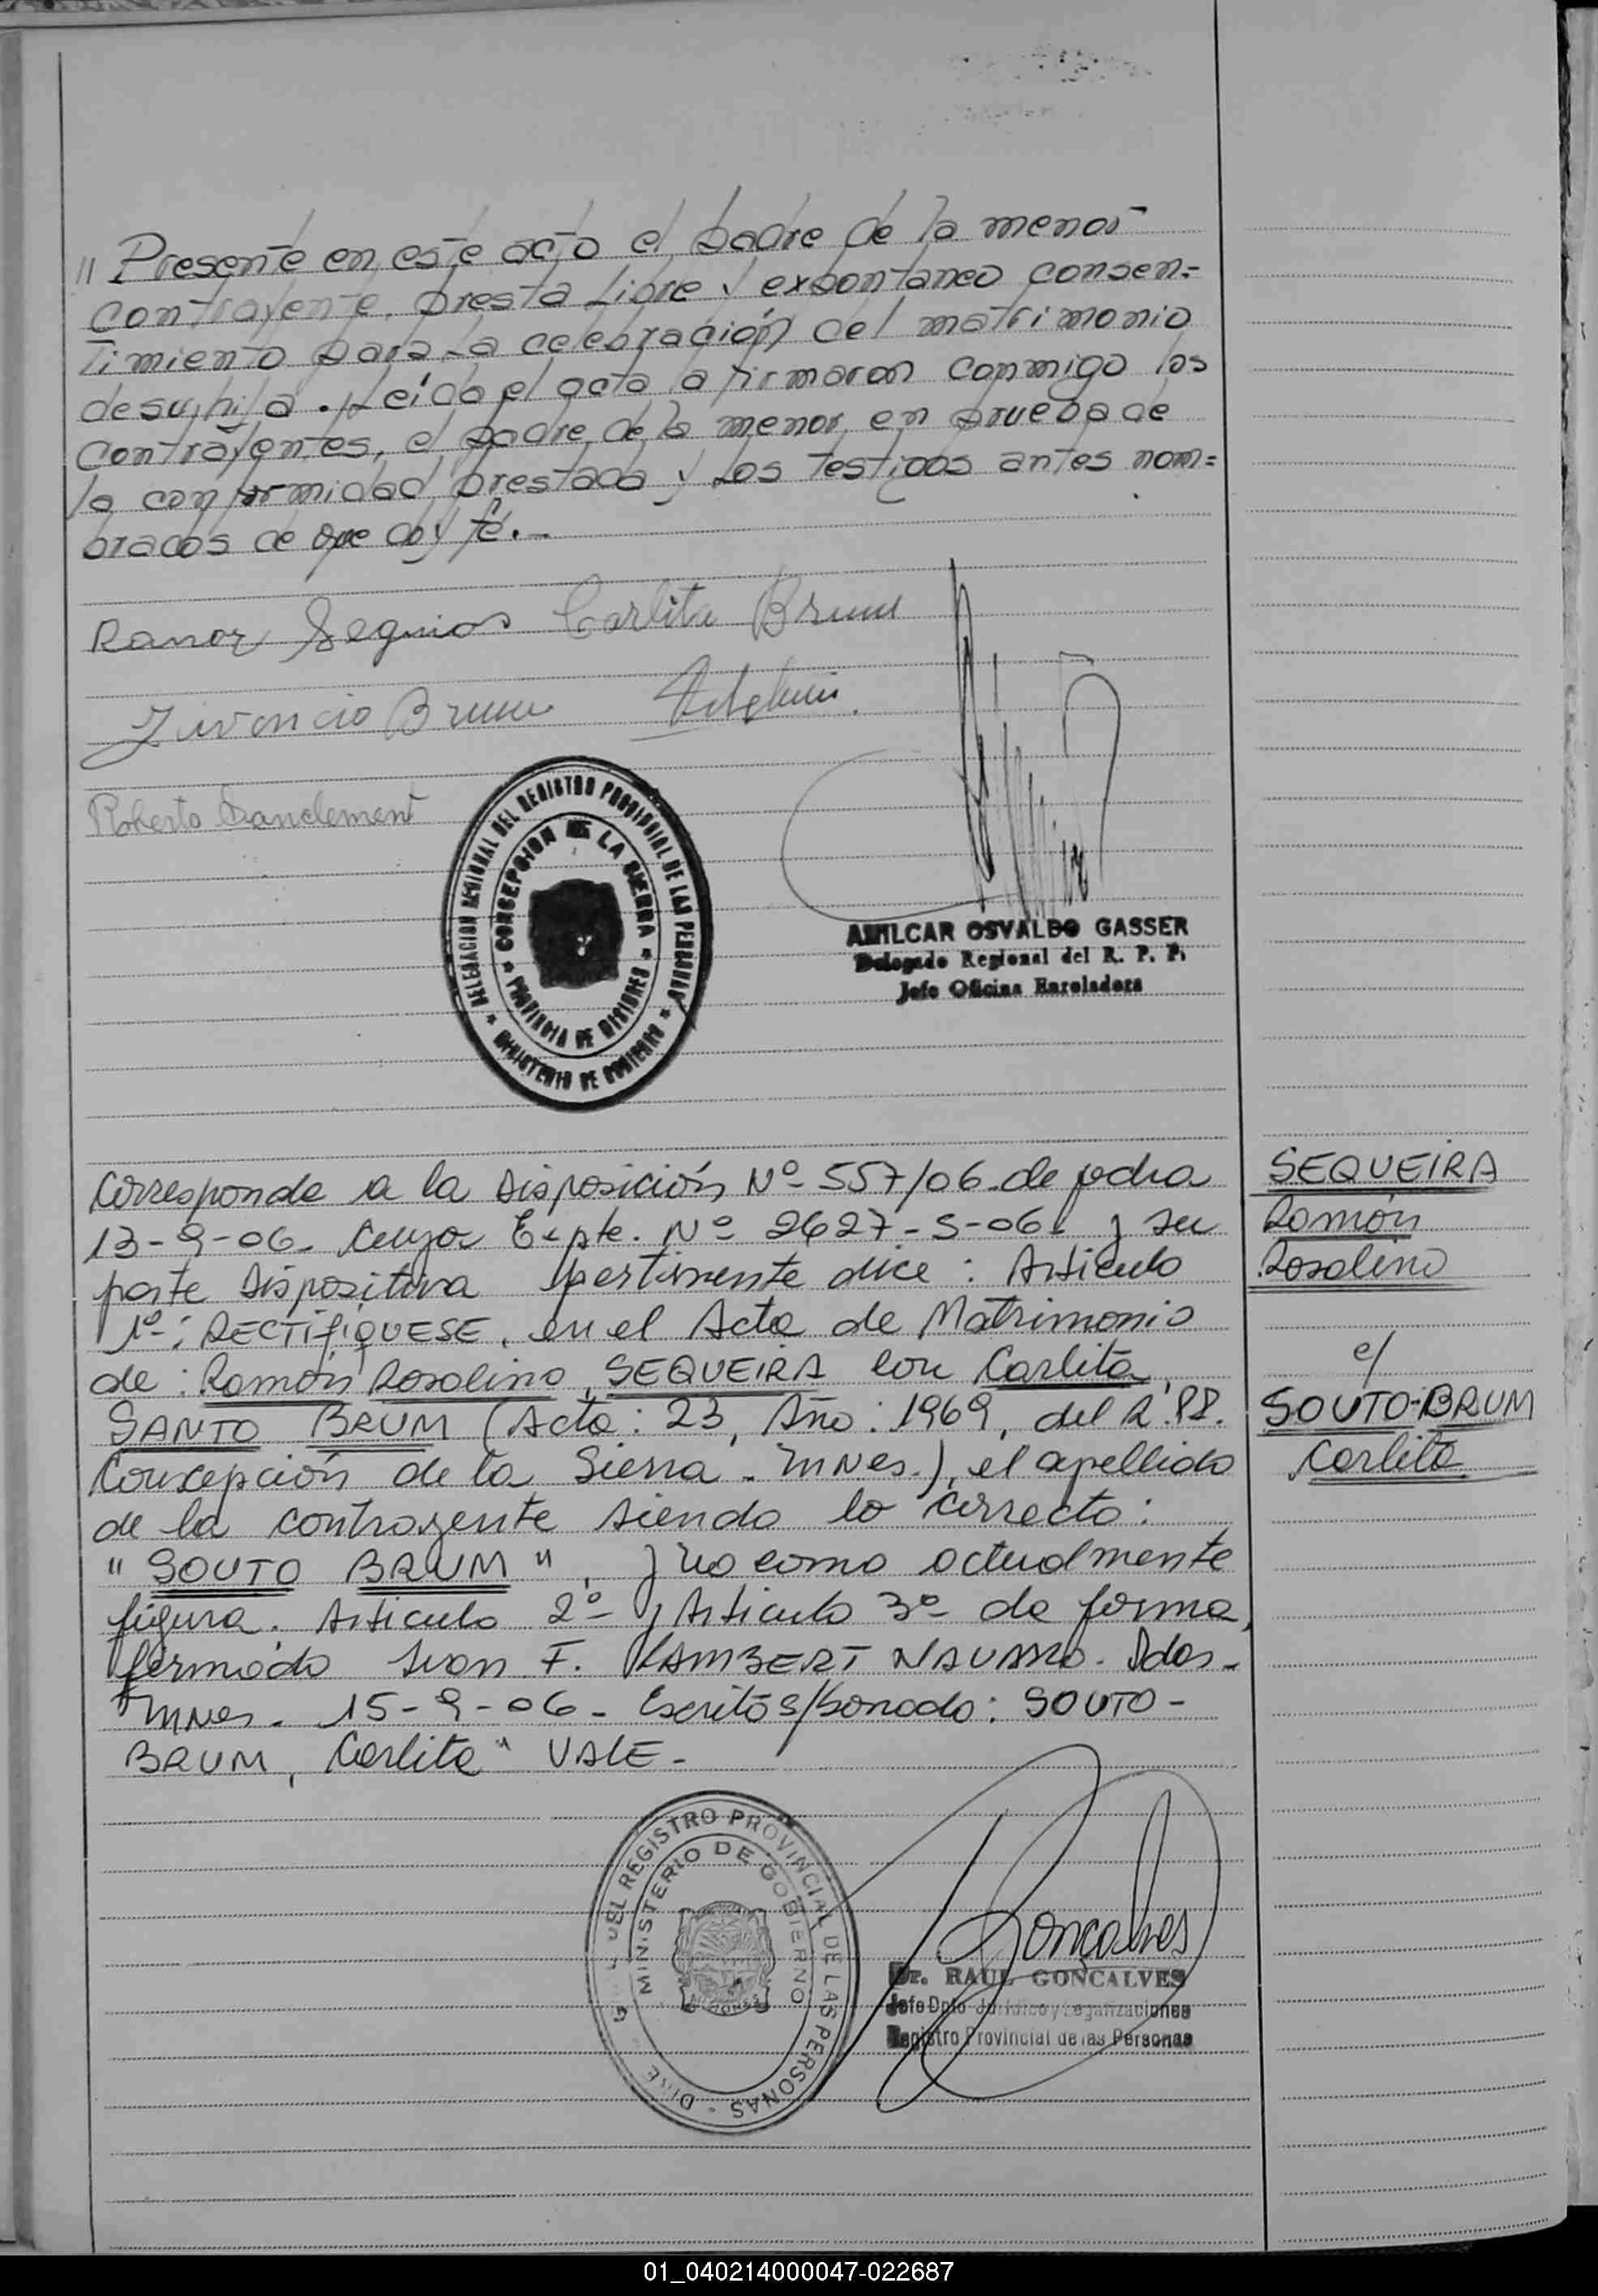 " Presente en este acto el padre de la menor
contrayente, presta Libre y expontaneo consen=
timiento para la celebración del matrimonio
de su hija. Leída el acta la firmaron conmigo los
contrayentes, el padre de la menor en prueba de
la conformidad prestada y Los testigos antes nom=
brados de que doy fé.-
Carlita Brum
Juvencio Brum
Roberto Sanclement
DELEGACION REGIONAL DEL REGISTRO PROVINCIAL DE LAS PERSONAS
* CONCEPCION DE LA SIERRA *
PROVINCIA DE MISIONES
* MINISTERIO DE GOBIERNO *
AMILCAR OSVALDO GASSER
Delegado Regional del R. P. P.
Jefe Oficina Enroladora
Corresponde a la Disposición Nº 557/06 de fecha
13-9-06. Cuyo Expte. Nº 2627-S-06. y su
parte Dispositiva pertinente dice: Artículo
1º-: RECTIFIQUESE, en el Acta de Matrimonio
de: Ramón Rosolino SEQUEIRA con Carlita
SANTO BRUM (Acta: 23, Año: 1969, del R.PP.
Concepción de la Sierra - Mnes.), el apellido
de la contrayente siendo lo correcto:
"SOUTO BRUM", y no como actualmente
figura. Artículo 2º- y Artículo 3º- de forma,
firmado F. LAMBERT NAVARRO. Pdas-
Mnes. 15-9-06- Escrito s/borrado: SOUTO-
BRUM, Carlita" VALE-
SEQUEIRA
Ramón
Rosolino
c/
SOUTO-BRUM
Carlita
DEL REGISTRO PROVINCIAL DE LAS PERSONAS -
MINISTERIO DE GOBIERNO
MISIONES
Goncalves
Dr. RAUL GONCALVES
Jefe Dpto Jurídico y Legalizaciones
Registro Provincial de las Personas
01_040214000047-022687